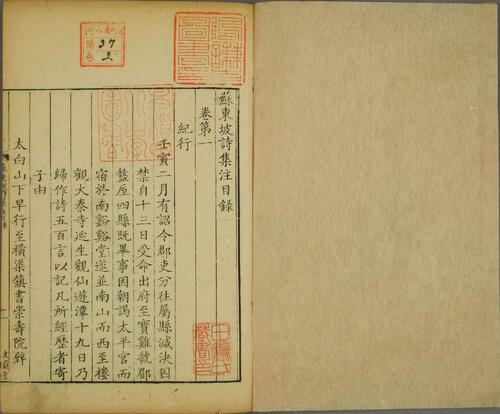 蘇東坡詩集注目錄
卷第一
紀行
壬寅二月有詔令郡吏分往屬縣減決囚
禁自十三日受命出府至寶雞虢郿
盩厔四縣既畢事因朝謁太平宮而
宿於南谿谿堂遂並南山而西至樓
觀大秦寺延生觀仙遊潭十九日乃
歸作詩五百言以記凡所經歷者寄
子由
太白山下早行至橫渠鎮書崇壽院壁
37
2